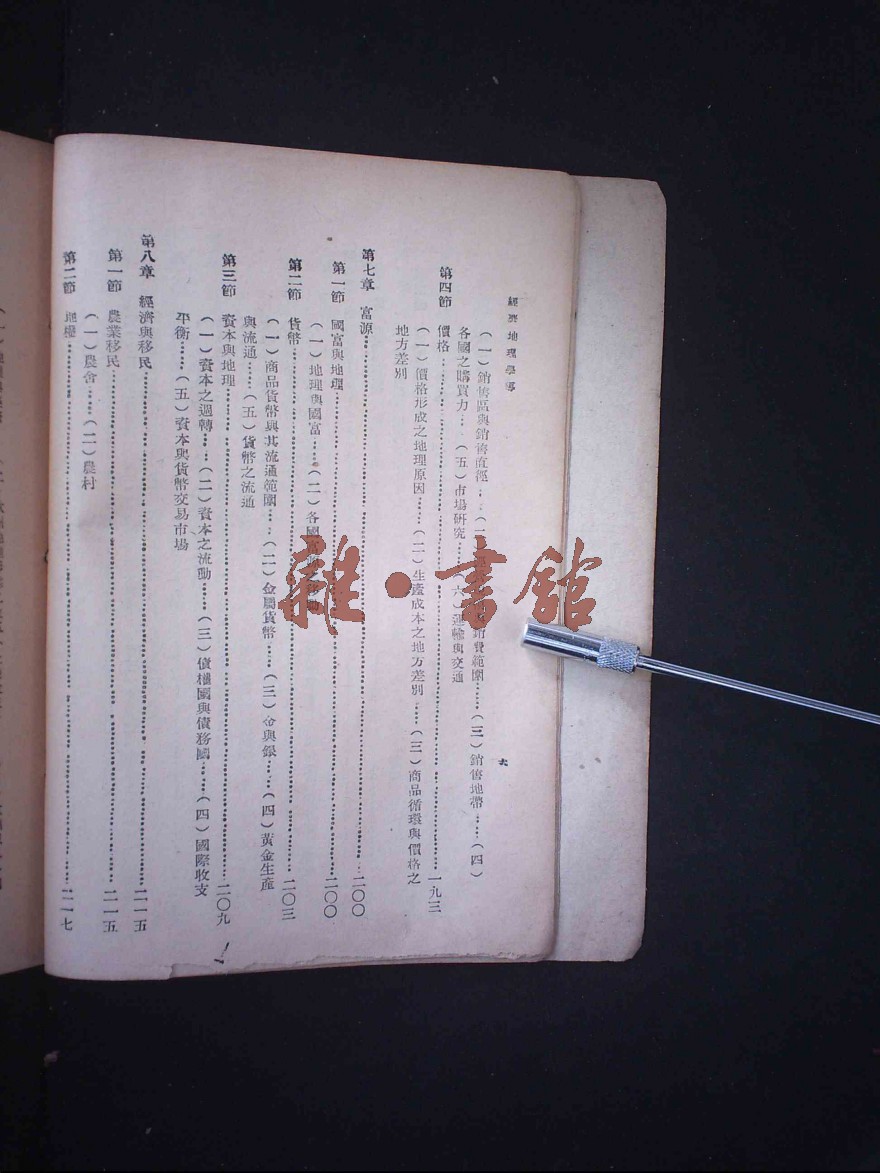 經濟地理學導
六
(一)銷售區與銷售直徑……(二) 銷費範圍……(三)銷售地帶……(四)
各國之購買力……(五)市場研究……(六)運輸與交通
第四節 價格……一九三
(一)價格形成之地理原因……(二)生產成本之地方差別……(三)商品循環與價格之
地方差別
第七章 富源……二〇〇
第一節 國富與地理……二〇〇
(一)地理與國富……(二)各國
第二節 貨幣……二〇三
(一)商品貨幣與其流通範圍……(二)金屬貨幣……(三)金與銀……(四)黃金生產
與流通……(五)貨幣之流通
第三節 資本與地理……二〇九
(一)資本之週轉……(二)資本之流動……(三)債權國與債務國……(四)國際收支
平衡……(五)資本與貨幣交易市場
第八章 經濟與移民……二一五
第一節 農業移民……二一五
(一)農舍……(二)農村
第二節 地權……二一七
雜·書館